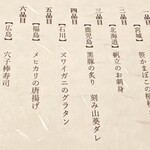 【宮城】 笹かまぼこの
二品目
【北海道】 帆立のお刺身
三品目
【鹿児島】 黒豚の炙り 刻み山葵ダレ
四品目
【石川】 ズワイガニのグラタン
五品目
【福島】 メヒカリの唐揚げ
六品目
【広島】 穴子棒寿司